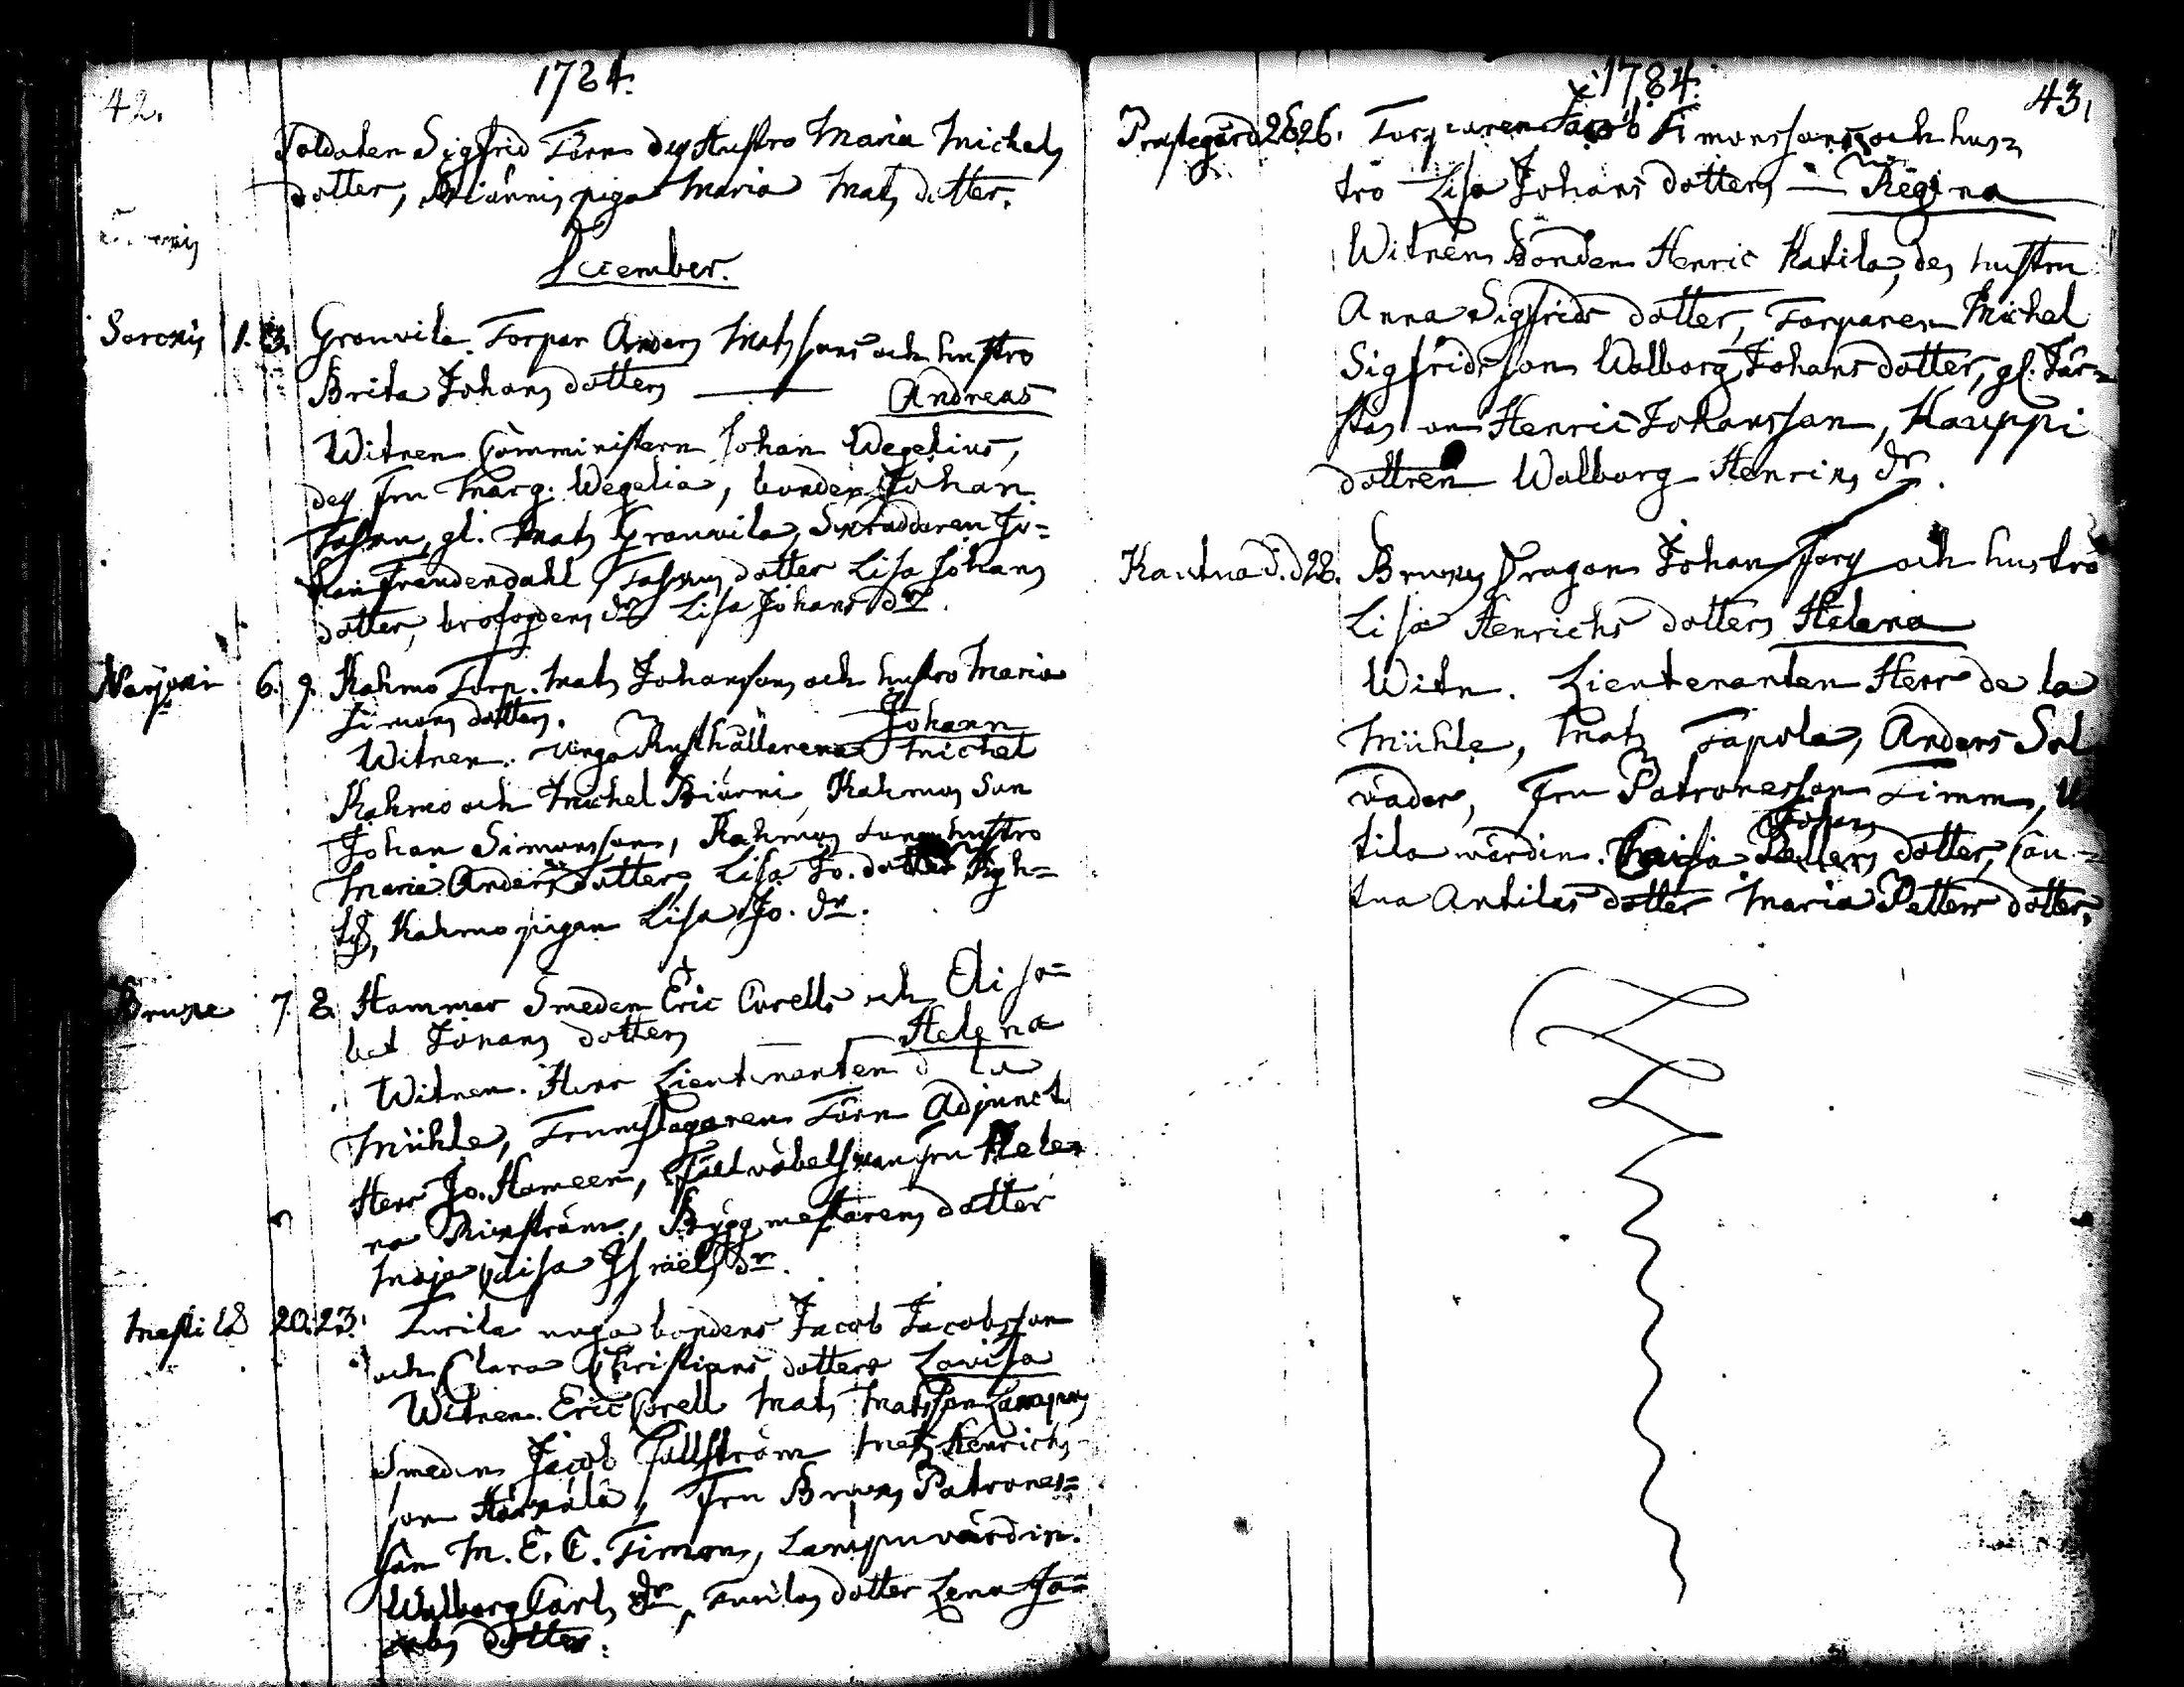 42.
1784.
Soldaten Sigfrid Törn des Hustro Maria Michels
dotter, Biännis piga Maria Mats dotter.
December.
Sorcky 1. 3. Gronvila Torpar Anders Matssons och hustro
Brita Johans dotters — Andreas
Witnen Comministern Johan Wegelius,
des fru Marg. Wegelia, bonden Johan
gl. Mats Gronvila, Skräddaren Jo=
han Frendendahl, dotter Lisa Johans
dotter, brofogdens dr Lisa Johans dr.
6. 9. Kahmo Torp. Mats Johanssons och hustro Maria
Simons dotters. Johann
Witnen. Unga Rusthållarena Michel
Kahmo och Michel Biänni, Kahmos Son
Johan Simonsson, Kahmos sons hustro
Maria Anders dotter, Lisa Jo. dotter
Kahmo pigan Lisa Jo. dr.
Bruket 7. 8. Hammar Smeden Eric Corells och Elisa=
bet Johans dotters — Helena
Witnen. Herr Lieutenanten d la
Mühle, Trumslagaren Törn Adjunct
Herr Jo. Hameen, Fält väbelskan fru Hele=
na Rinström, Bygg mestarens dotter
Maja Caisa Israels dr.
20. 23. Turila unga bondens Jacob Jacobsson
och Clara Christians dotters Lovisa
Witnen. Eric Corell Mats Matsson Lampus
Smeden Jacob Fällström Mats Henrichs
son Härkälä, Fru Bruks Patrones=
san M. E. C. Timm, Lampu värdin.
Walborg Carls dr, Turilas dotter Lena Ja=
cobs dotter.
1784.
43.
Prästegård 25. 26. Torparen Jacob Simonssons och hus=
tro Lisa Johans dotters — Regina
Witnen Bonden Henric Katila, des hustru
Anna Sigfrids dotter, Torparen Michel
Sigfridsson Walborg Johans dotter, gl.
Henric Johansson, Kauppi
dottren Walborg Henrics dr.
Kautua d. d 28. Bruks Dragon Johan Forss och hustro
Lisa Henrichs dotters Helena
Witn. Lieutenanten Herr de la
Mühle, Mats Tapola, Anders Sal
vader, Fru Patronessan Timm, U
tila värdin. Caisa Johans dotter, Cau=
tua Antilas dotter Maria Petters dotter.